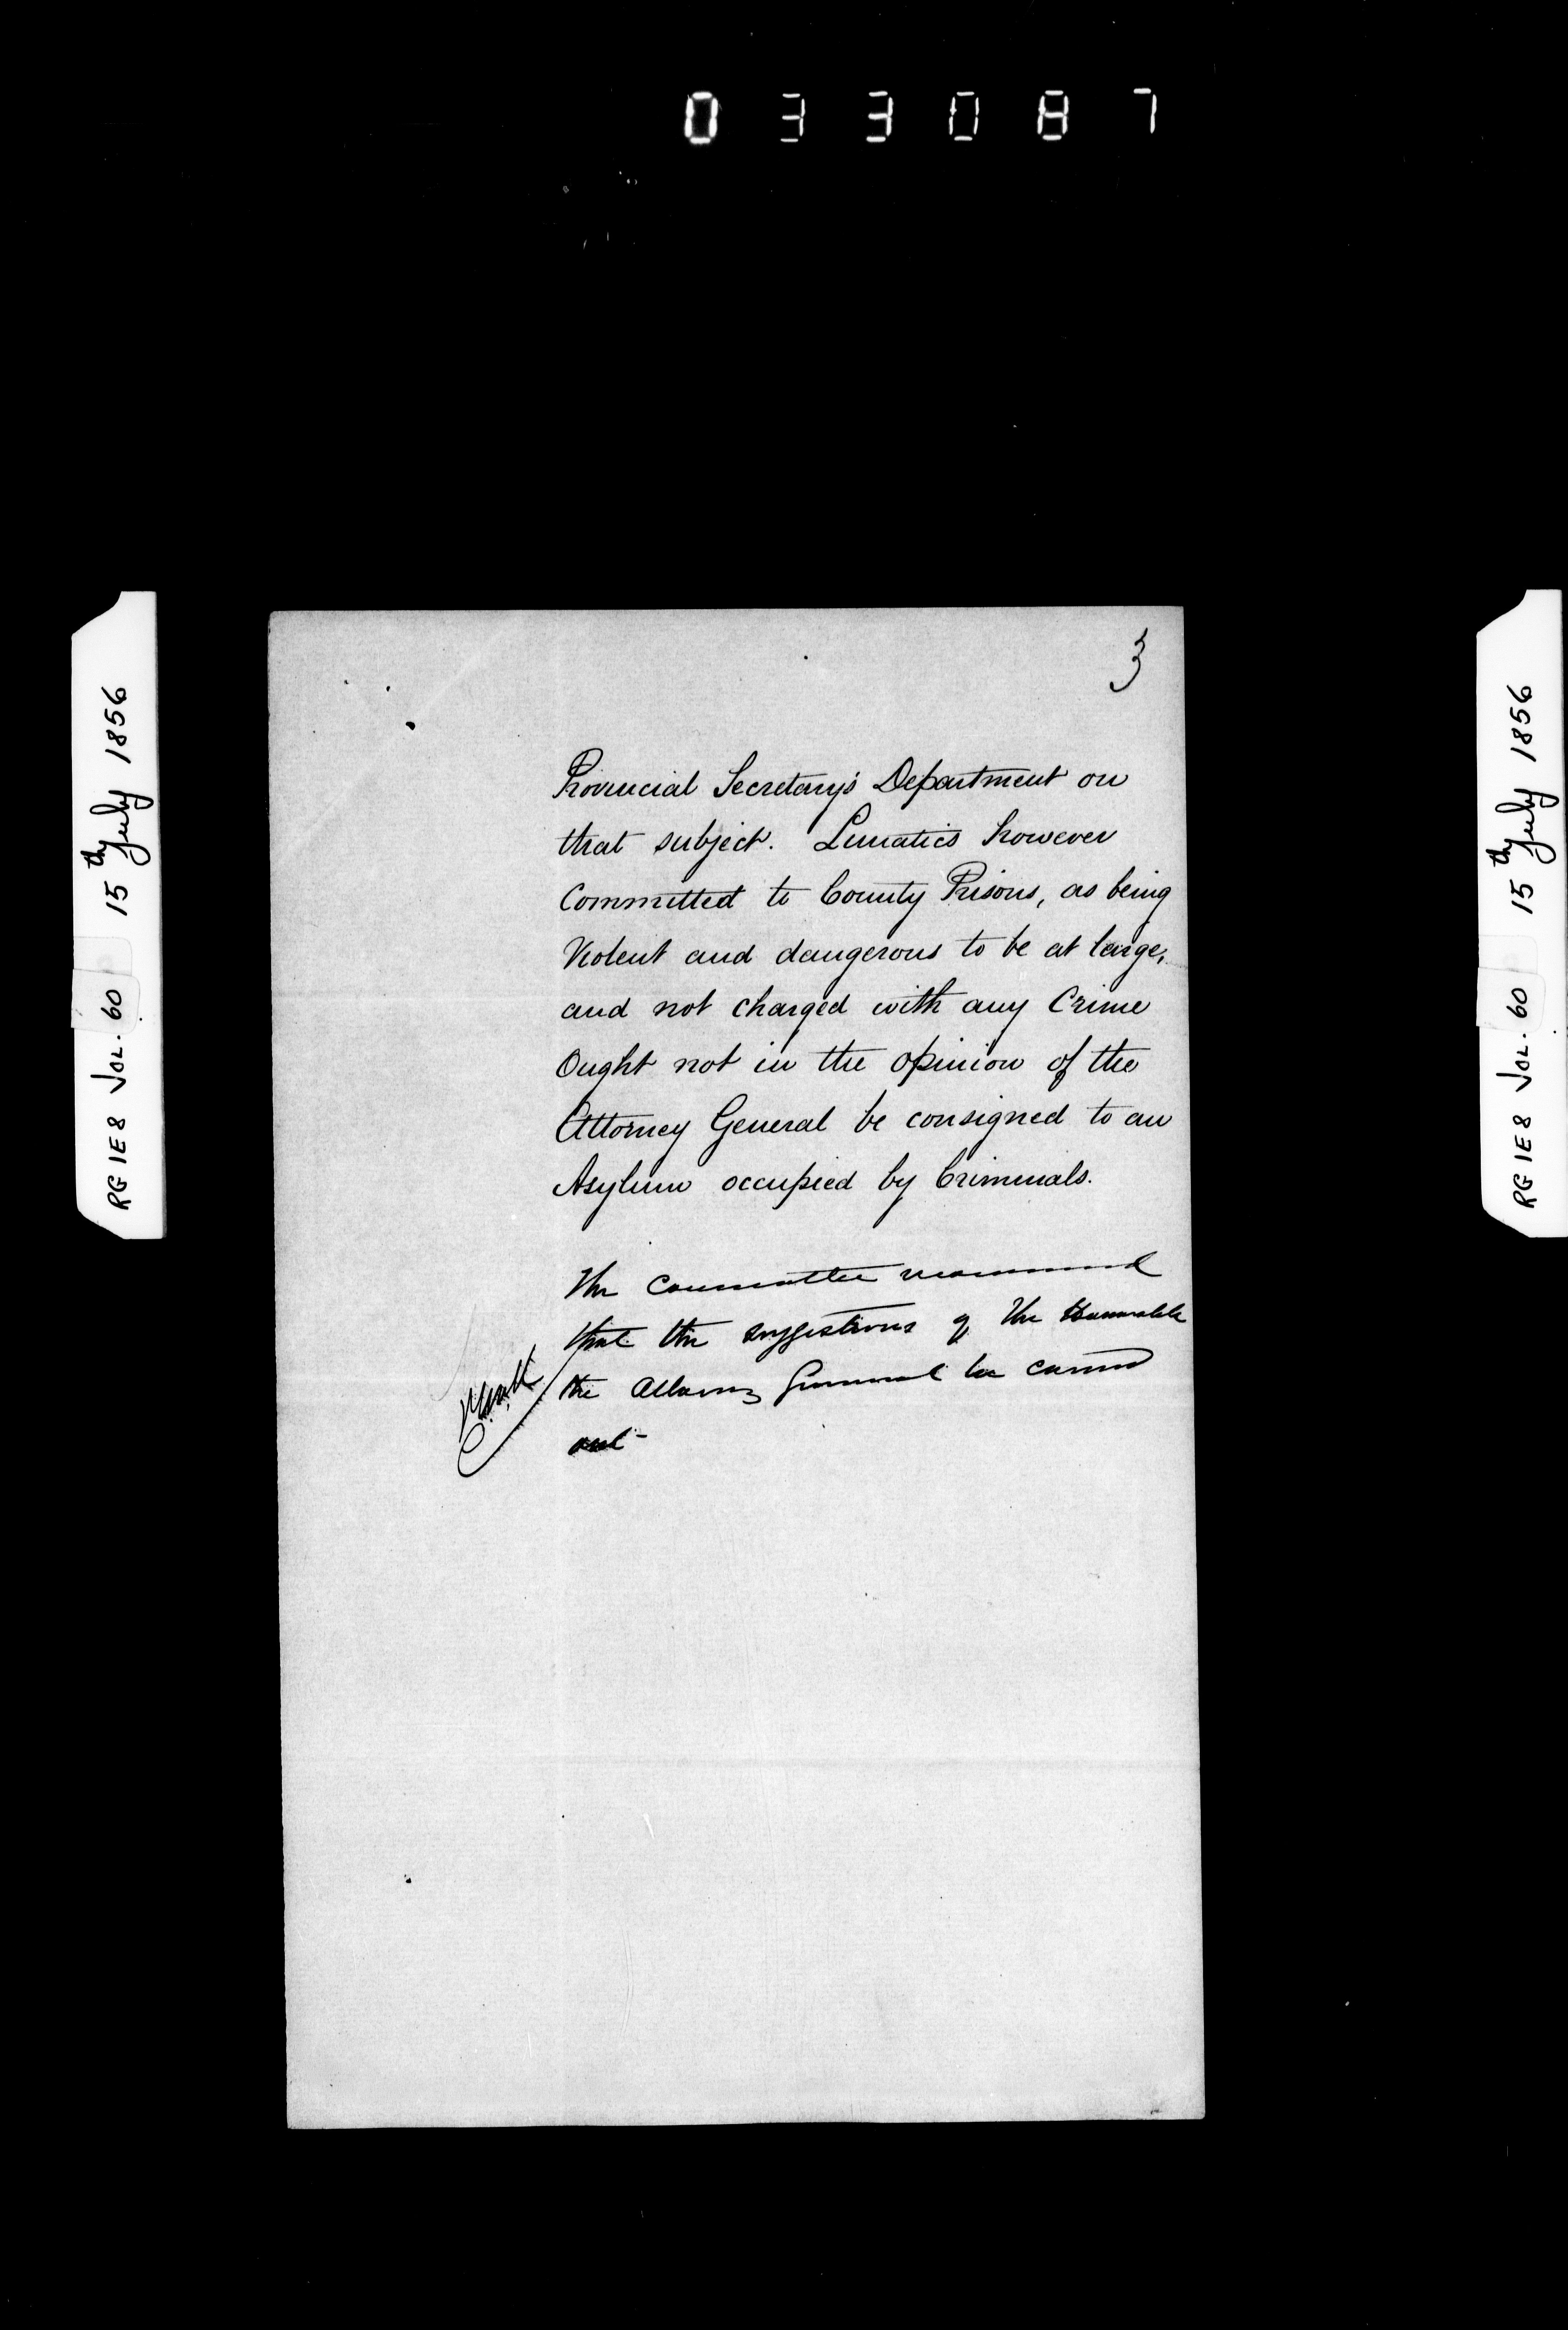 033087
RG 1E8 VOL. 60 15th July 1856
3
Provincial Secretary's Department on
that subject. Lunatics however
Committed to County Prisons, as being
Violent and dangerous to be at large,
and not charged with any Crime
Ought not in the opinion of the
Attorney General be consigned to an
Asylum occupied by Criminals.
The Committee recommend
that the suggestions of the Honorable
the Attorney General be carried
out -
RG 1E8 VOL. 60 15th July 1856